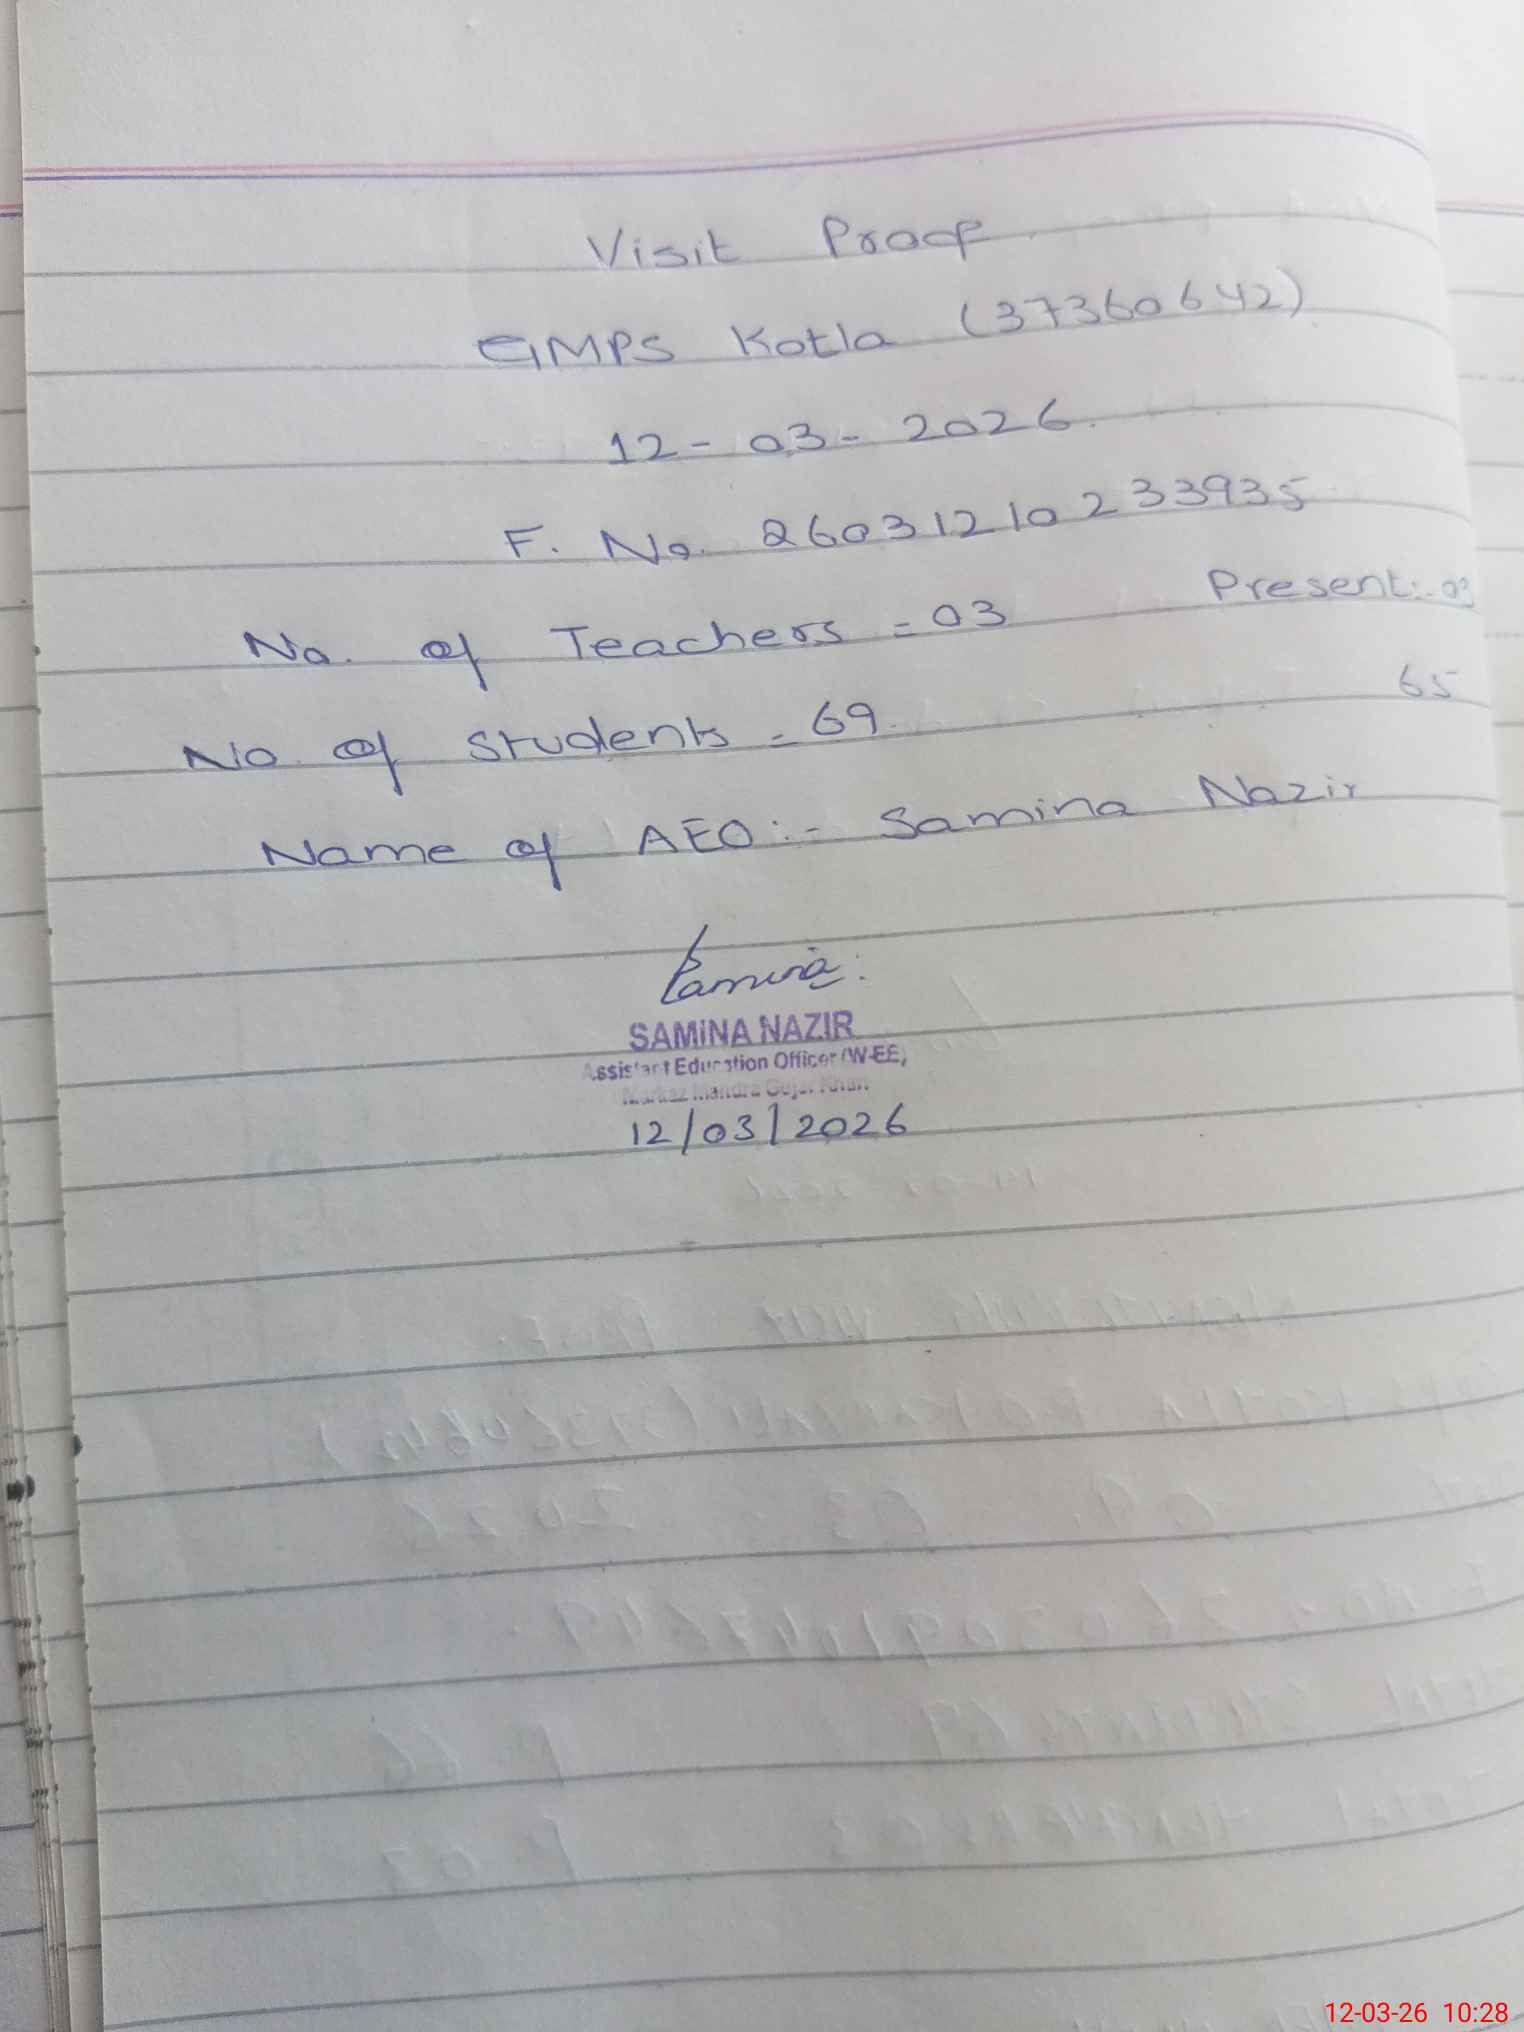 Visit Proof
GMPS Kotla (37360642)
12 - 03 - 2026.
F. No. 26031210233935
No. of Teachers = 03 Present:- 03
No. of Students = 69. 65
Name of AEO :- Samina Nazir
Samina
SAMINA NAZIR
Assistant Education Officer (W-EE)
Markaz Mandra Gujar Khan
12/03/2026
12-03-26 10:28